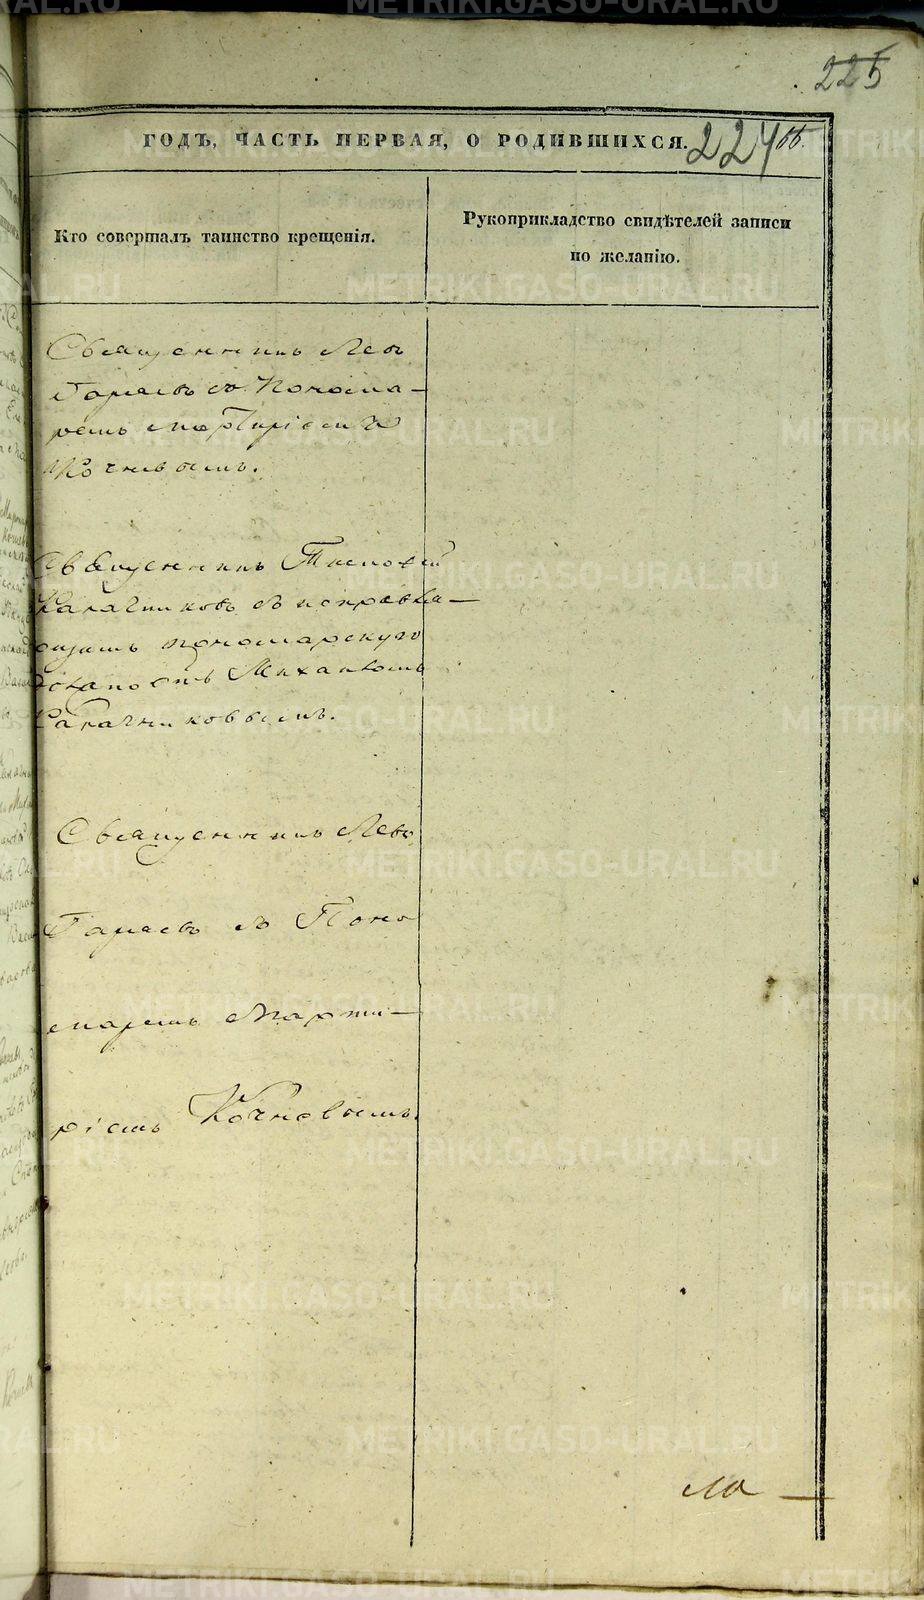 225
ГОДЪ, ЧАСТЬ ПЕРВАЯ, О РОДИВШИХСЯ. 224 об.
Кто совершалъ таинство крещенія.
Рукоприкладство свидѣтелей записи
по желанію.
Священникъ Левъ
съ Понома-
ремъ Мартиріемъ
Кочневымъ.
Священникъ Тимофей
Калачниковъ съ исправля-
ющимъ пономарскую
должность Михаиломъ
Калачниковымъ.
Священникъ Левъ
съ Поно
маремъ Марти-
ріемъ Кочневымъ.
METRIKI.GASO-URAL.RU